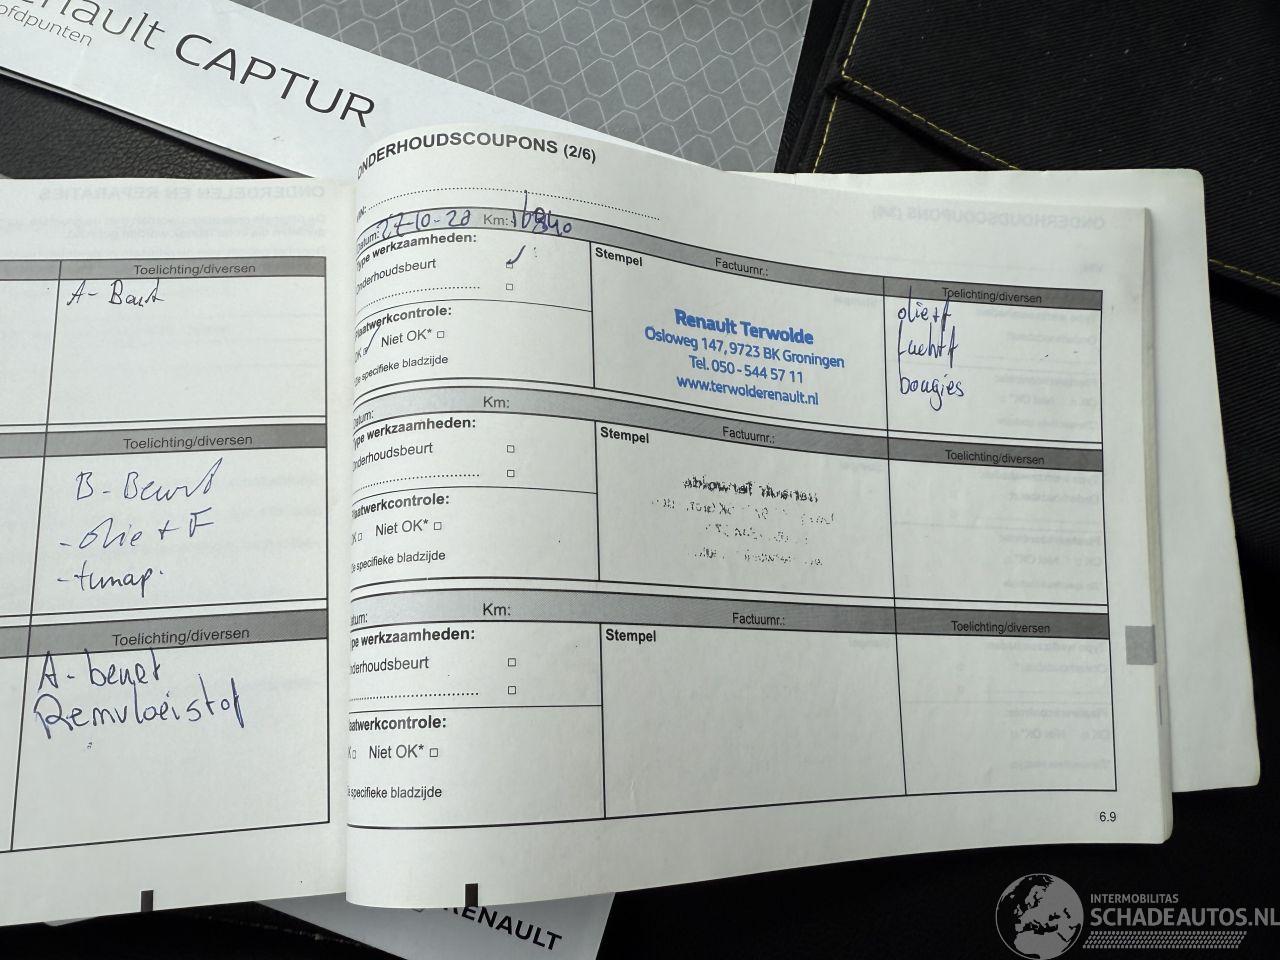 Renault CAPTUR
ofdpunten
Toelichting/diversen
A- Beurt
Toelichting/diversen
B- Beurt
- olie + F
Toelichting/diversen
A- beurt
Remvloeistof
ONDERHOUDSCOUPONS (2/6)
VIN:
Datum: Km:
Type werkzaamheden:
Onderhoudsbeurt
Plaatwerkcontrole:
OK Niet OK*
Zie specifieke bladzijde
Stempel
Factuurnr.:
Renault Terwolde
Osloweg 147, 9723 BK Groningen
Tel. 050 - 544 57 11
www.terwolderenault.nl
Toelichting/diversen
olie+f
Lucht f
bougies
Datum: Km:
Type werkzaamheden:
Onderhoudsbeurt
Plaatwerkcontrole:
OK Niet OK*
Zie specifieke bladzijde
Stempel
Factuurnr.:
Toelichting/diversen
Datum: Km:
Type werkzaamheden:
Onderhoudsbeurt
Plaatwerkcontrole:
OK Niet OK*
Zie specifieke bladzijde
Stempel
Factuurnr.:
Toelichting/diversen
6.9
RENAULT
INTERMOBILITAS
SCHADEAUTOS.NL